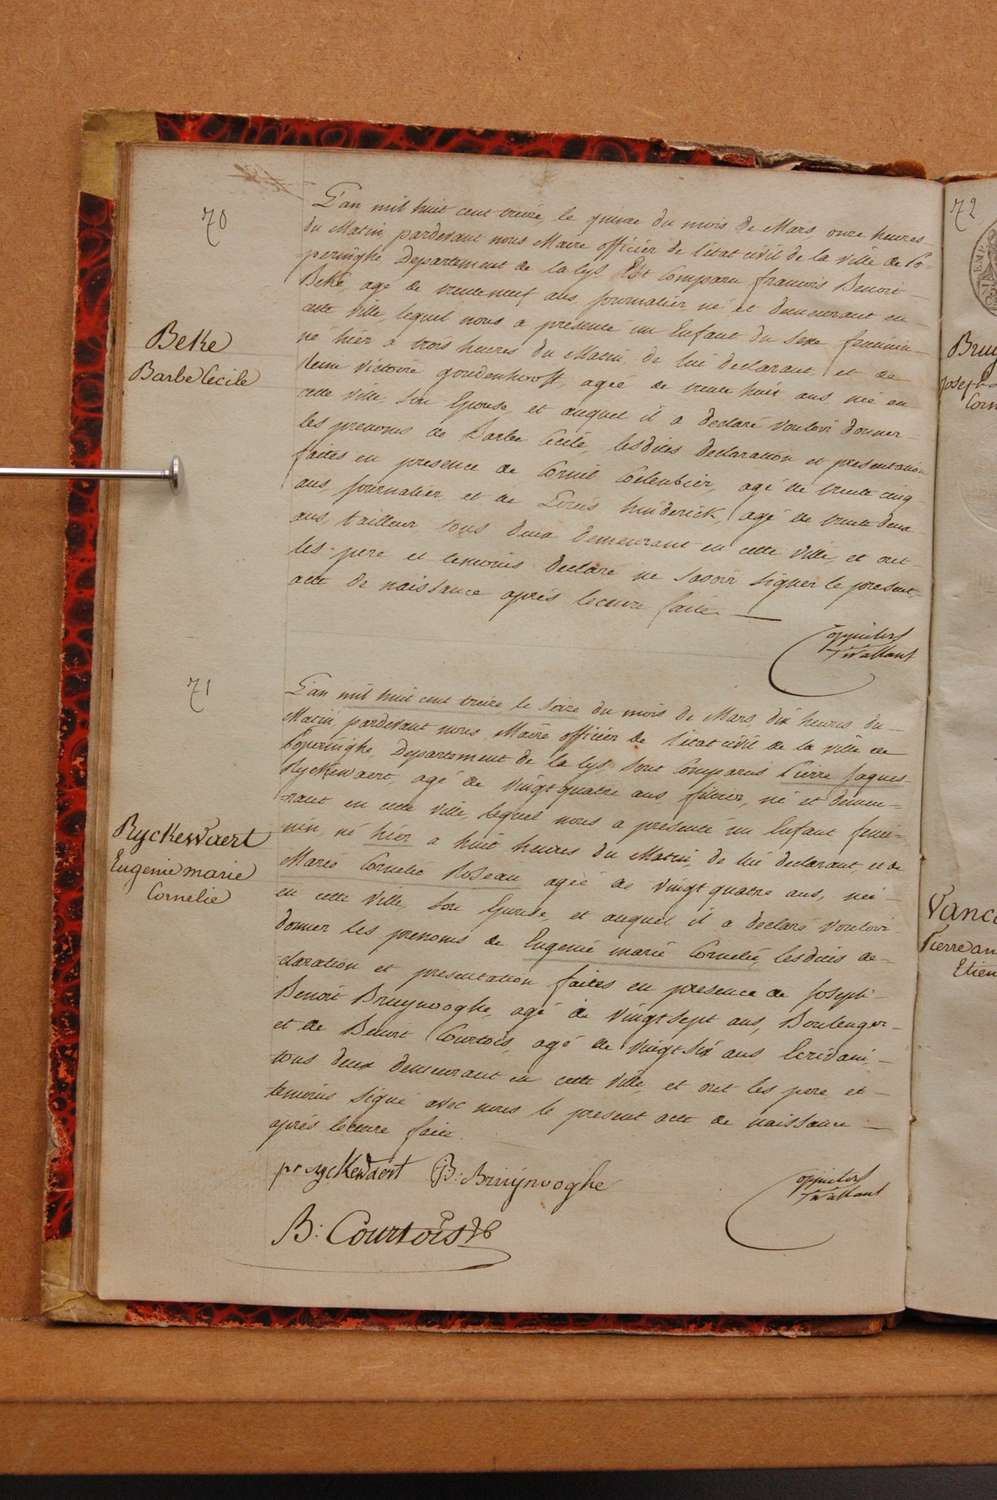 70
Beke
Barbe Cecile
L'an mil huit cent treize, le quinze du mois de Mars onze heures
du Matin, pardevant nous Maire officier de l'état civil de la ville de Po-
peringhe, Departement de la Lys Est Comparu francois Benoit
Beke agé de trenteneuf ans, journalier, né et demeurant en
cette ville, lequel nous a presenté un Enfant du Sexe feminin
né hier à trois heures du Matin, de lui declarant et de
Victoire goudenhooft, agée de trente huit ans née en
cette ville, son Epouse, et auquel il a déclaré vouloir donner
les prenoms de Barbe Cecile, lesdites declaration et presentation
faites en presence de Cornil Colenbier, agé de trente cinq
ans, journalier, et de Louis huiderick, agé de trente deux
ans, tailleur, tous deux demeurant en cette ville, et ont
les pere et temoins declaré ne savoir signer le present
acte de naissance après lecture faite.
71
Ryckewaert
Eugenie marie
Cornelie
L'an mil huit cent treize le Seize du mois de Mars dix heures du
Matin, pardevant nous Maire officier de l'état civil de la ville de
Poperinghe, Departement de la Lys sont Comparus Pierre Jaques
Ryckewaert, agé de vingt quatre ans, né et demeu-
rant en cette ville, lequel nous a presenté un Enfant femi-
nin, né hier a huit heures du Matin, de lui declarant, et de
Marie Cornelie Roseau agée de vingt quatre ans, née
en cette ville son Epouse, et auquel il a declaré vouloir
donner les prenoms de Eugenie marie Cornelie, lesdites de-
claration et presentation faites en presence de Joseph
Benoit Bruynooghe, agé de vingtsept ans, Boulenger
et de Benoit Courtois, agé de vingtsix ans Ecrivain,
tous deux demeurant en cette ville, et ont les pere et
temoins signé avec nous le present acte de naissance
après lecture faite.
pr ryckewaert B: Bruynooghe
B: Courtois
72
Bruy
Joseph
Corn
Vanc
Pierre an
Etien